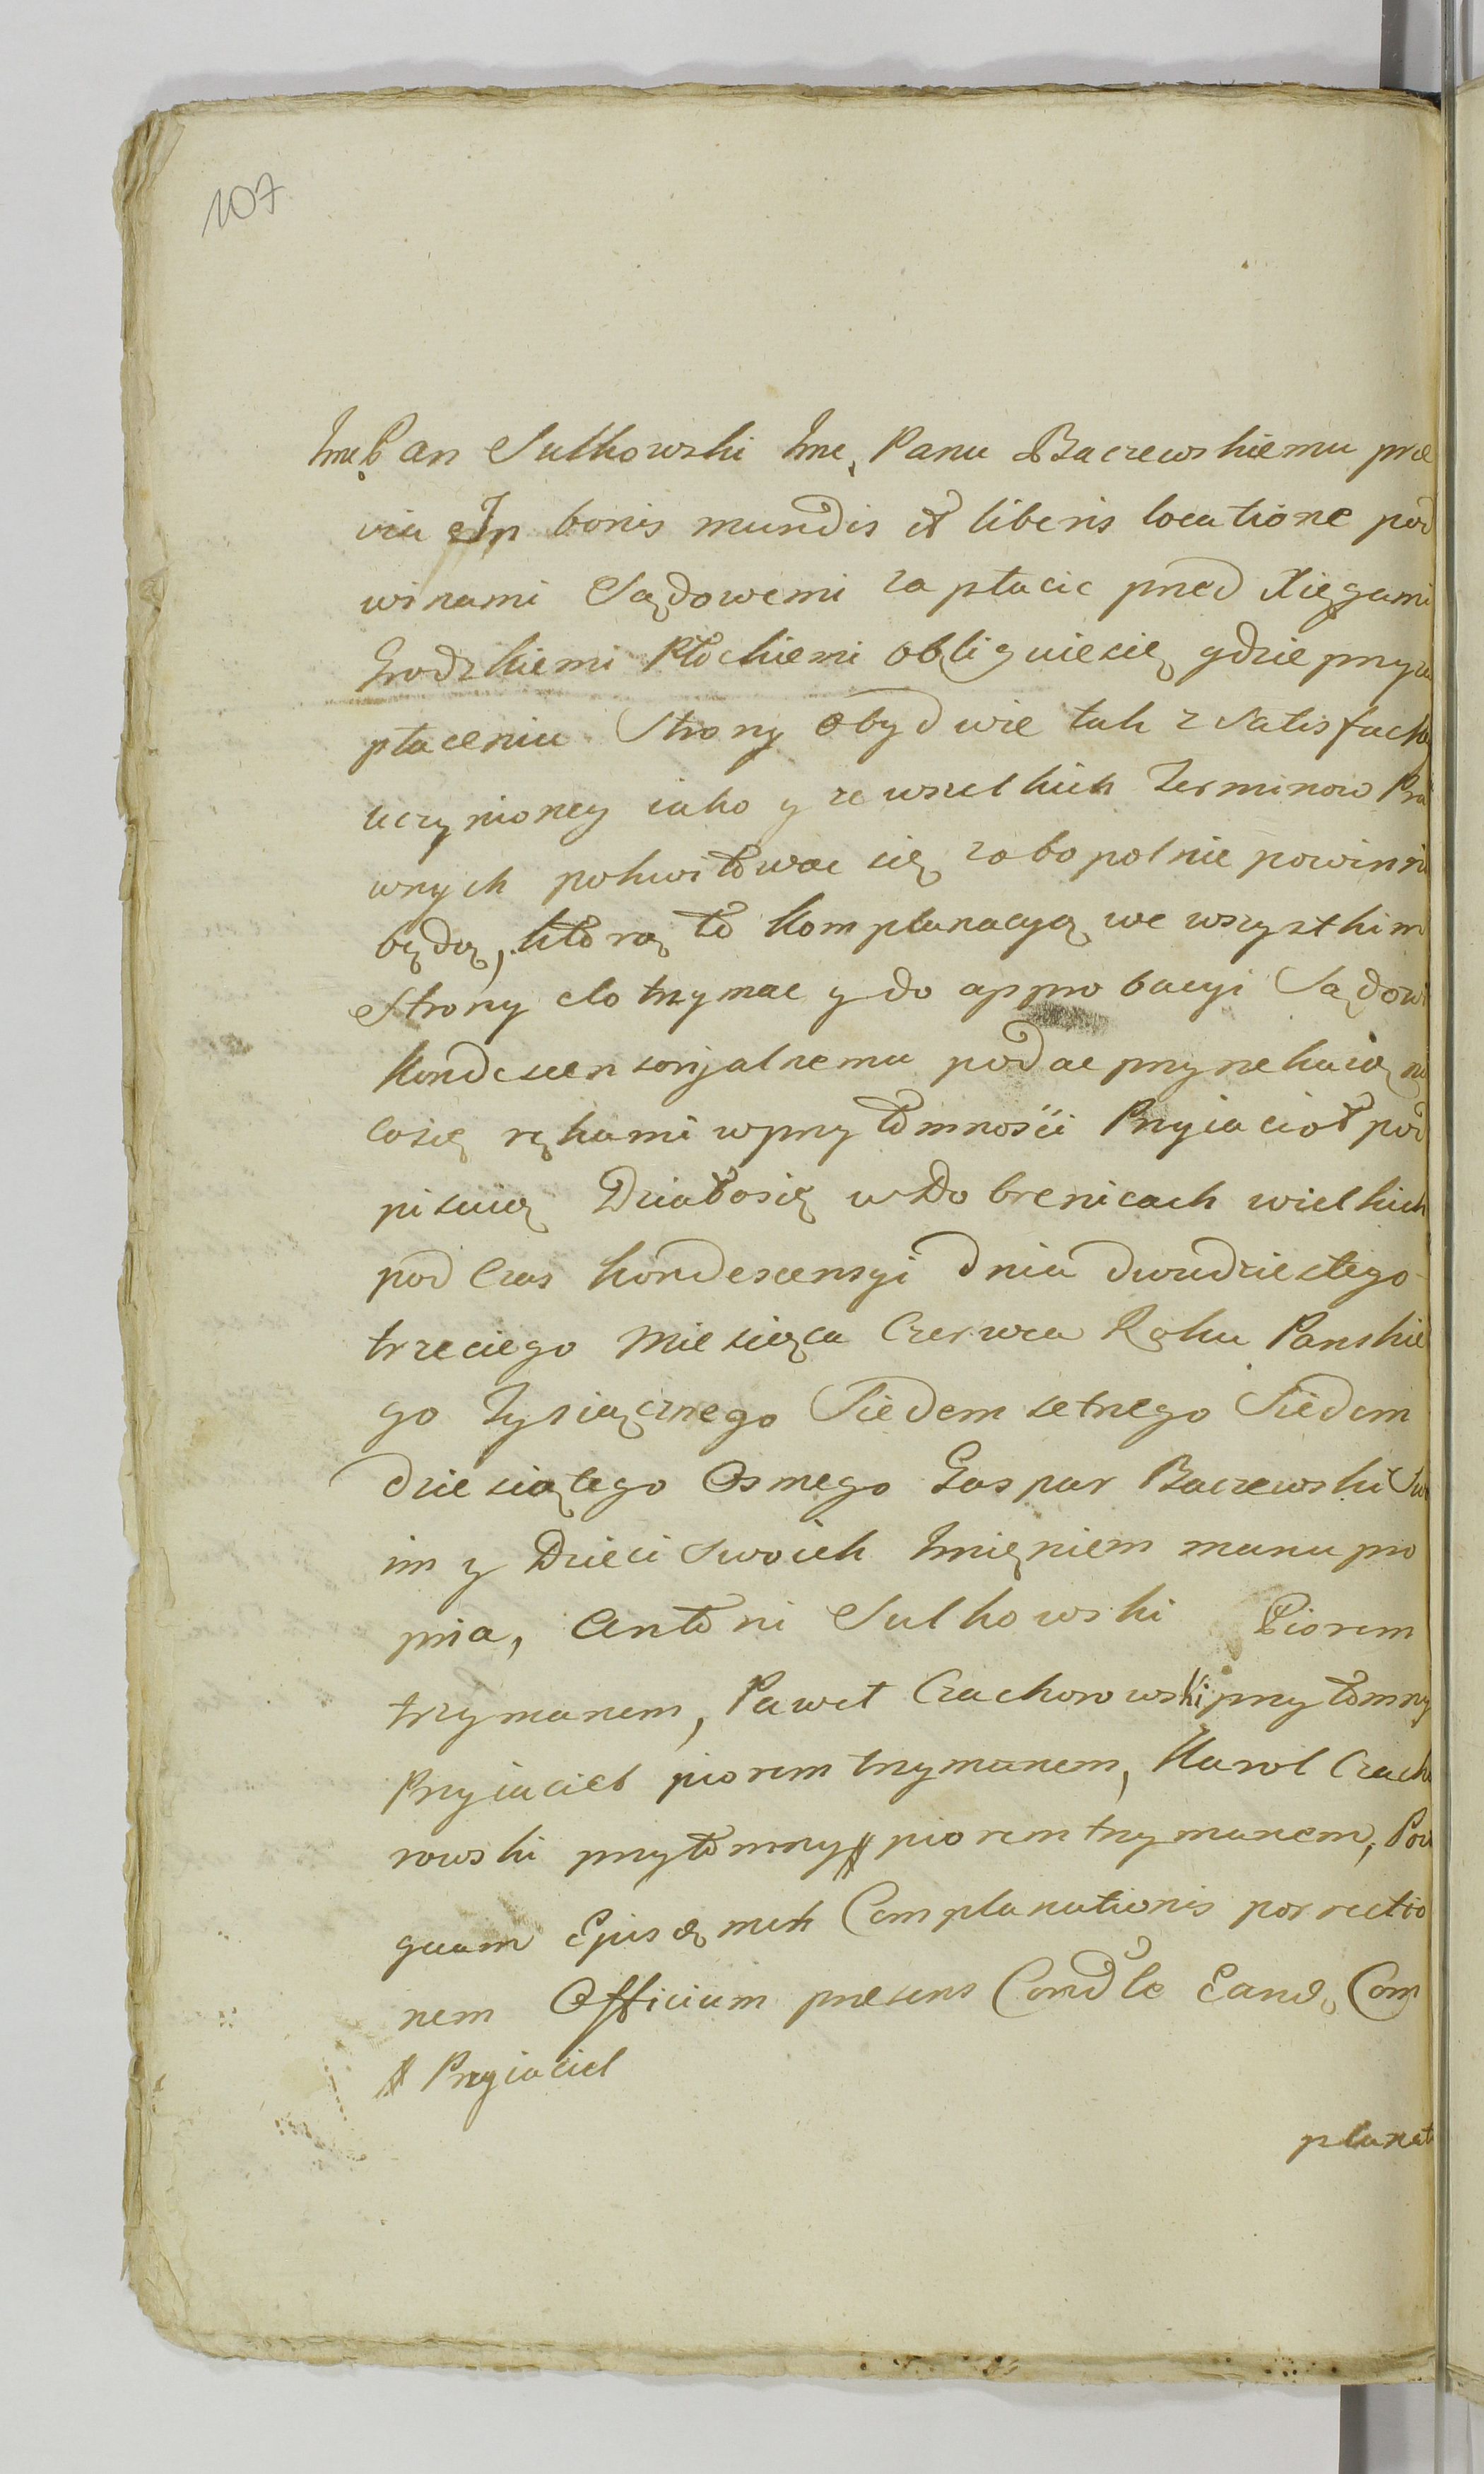 107
Jmc Pan Sulkowski Jmc, Panu Baczewskiemu præ
via In bonis mundis et liberis locatione pod
winami Sądowemi zapłacic przed Xięgami
Grodzkiemi Płockiemi obliguiesię gdzie przy za
płaceniu Strony obydwie tak z Satisfackcyi
uczynioney iako y ze wszelkich Terminow Pra
wnych pokwitowac się zobopolnie powinni
będą, którą to Komplanacyą we wszystkim
Strony dotrzymac y do approbacyi Sądowi
Kondescensorjalnemu podac przyrzekaią na
cosię rękami wprzytomności Przyiacioł pod
pisuią Działosię w Dobrenicach wielkich
pod Czas Kondescensyi dnia dwudziestego
trzeciego Miesiąca Czerwca Roku Panskie
go Tysiącznego Siedemsetnego Siedem
dziesiątego Osmego Gaspar Baczewski Swo
im y Dzieci Swoich Imięniem manu pro
pria, Antoni Sulkowski Piorem
trzymanem, Paweł Czachorowski przytomny
Przyiaciel piorem trzymanem, Karol Czacho
rowski przytomny # piorem trzymanem, Post
quam Ejusdmch Complanationis porrectio
nem Officium præsens Condle Eand, Com
# Przyiaciel
planat